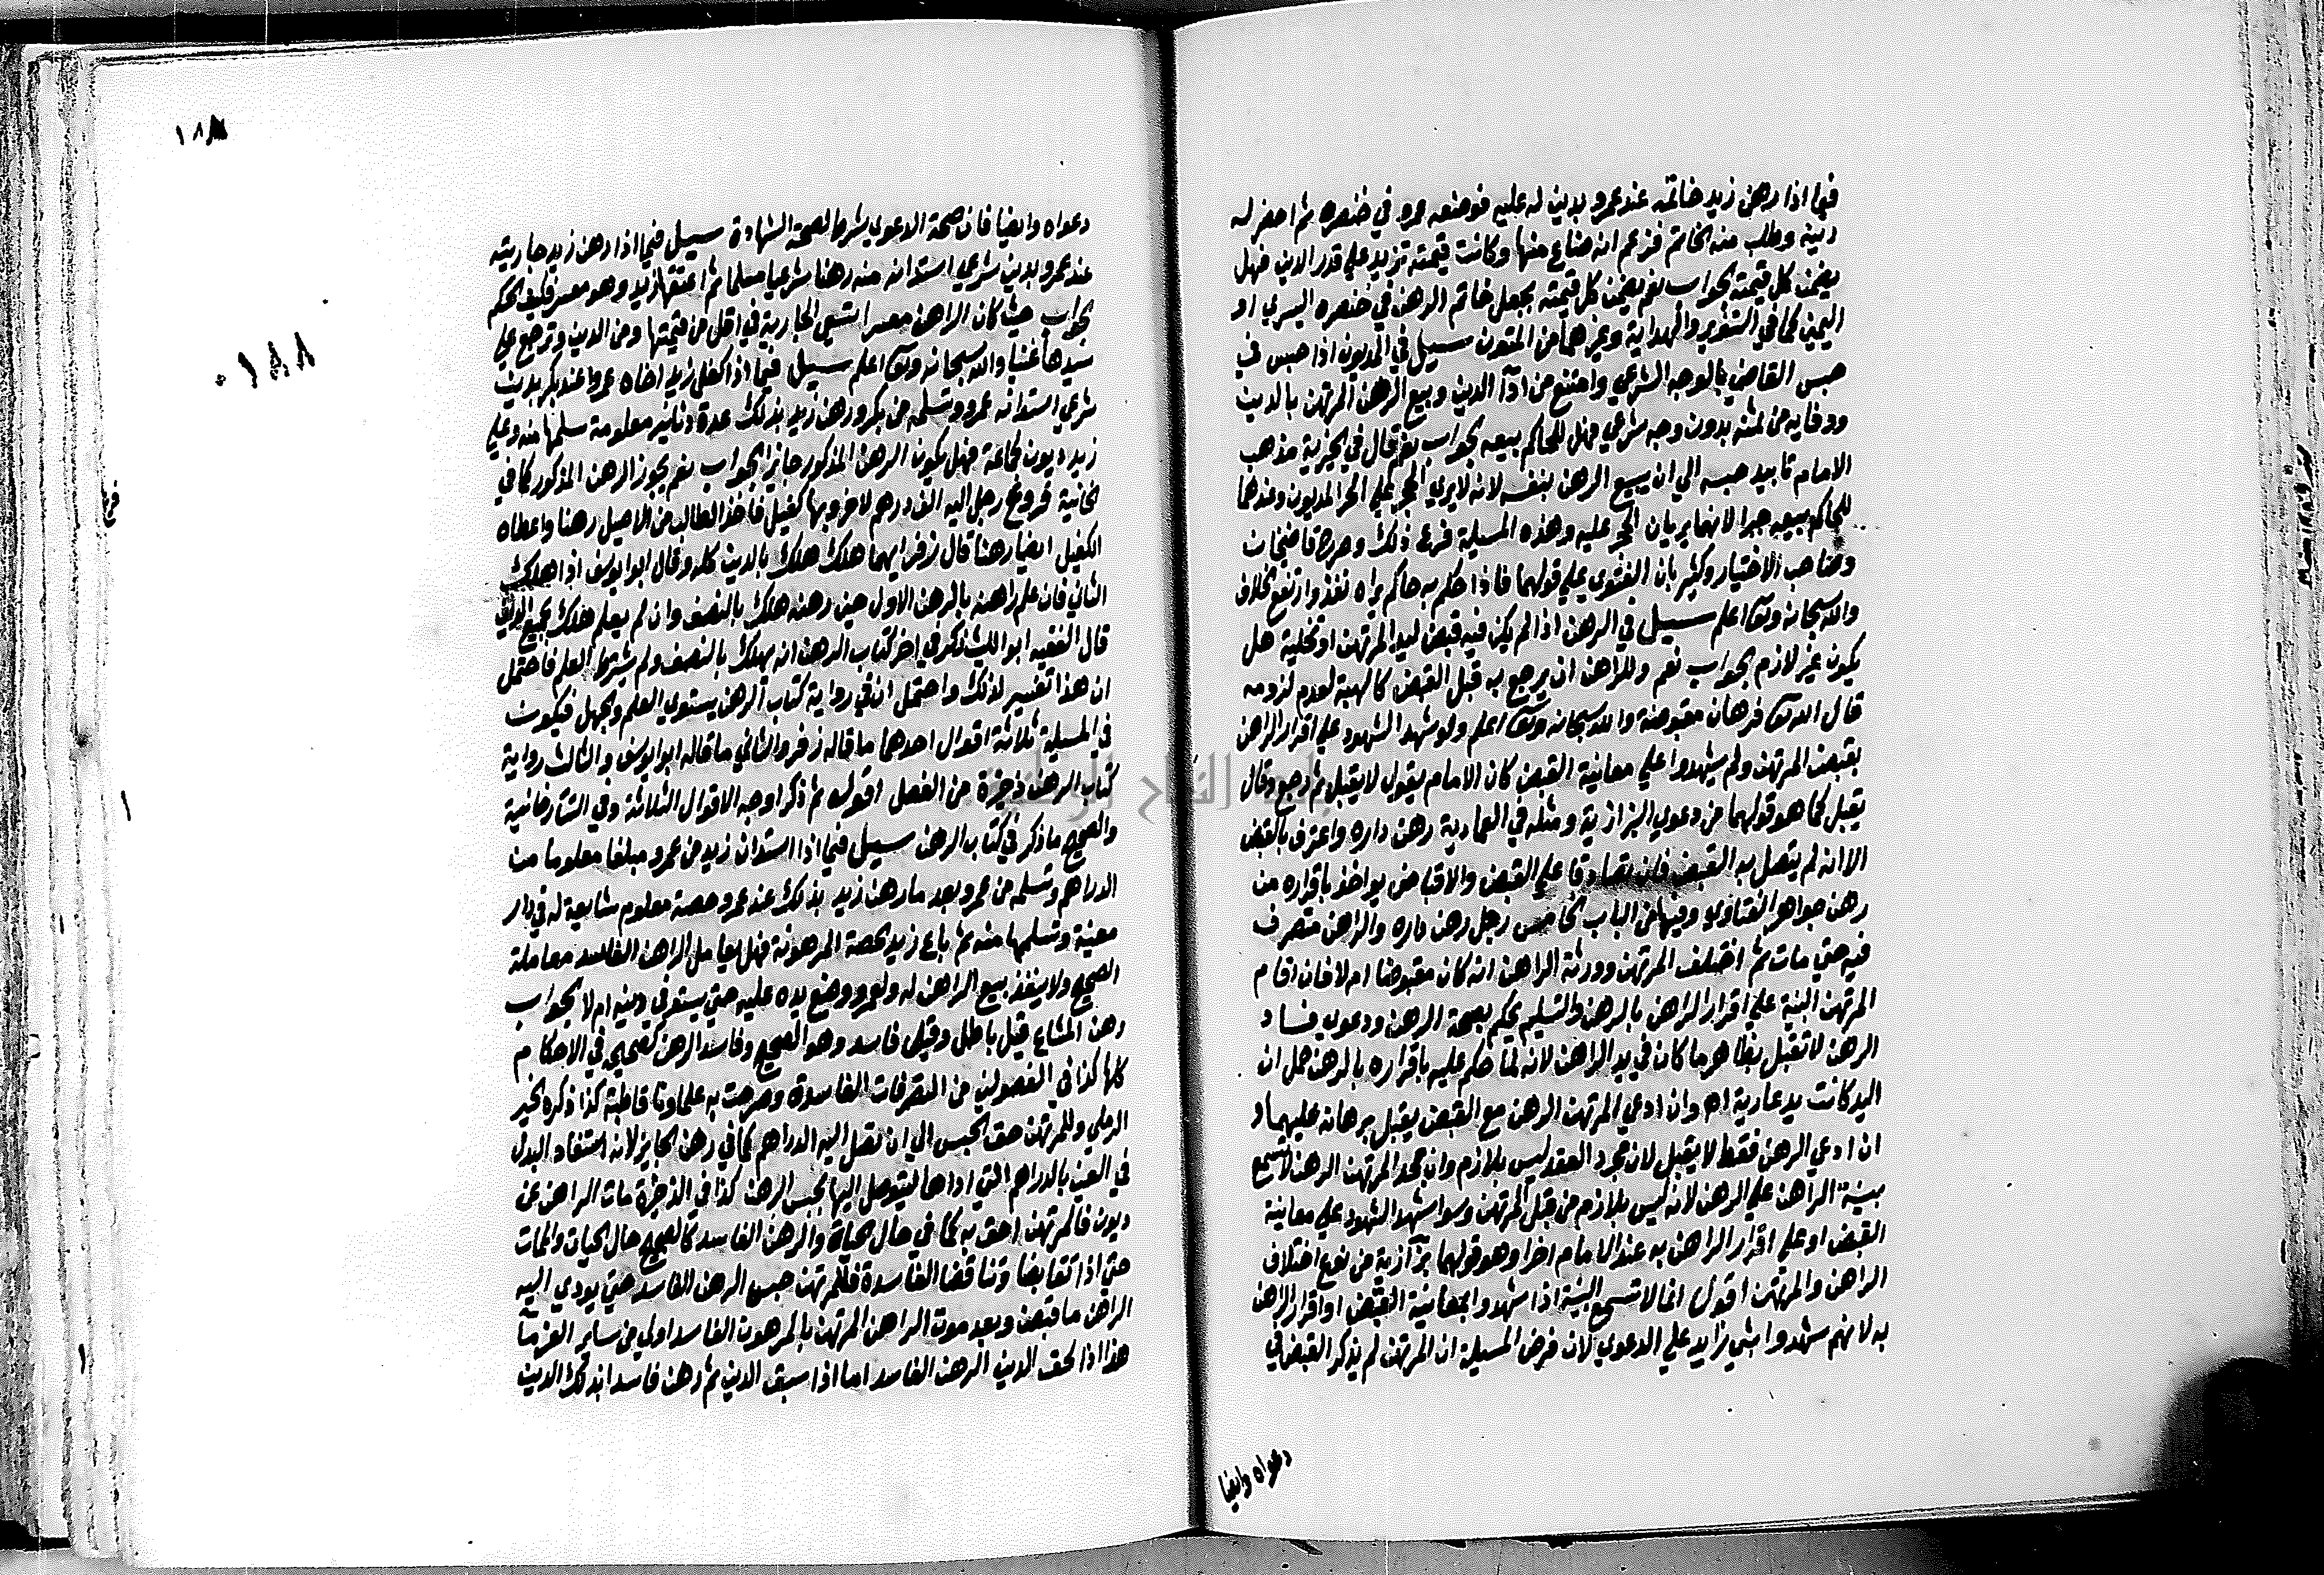 فيما اذا رهن زيد خاتمه عند عمرو بدين له عليه فوضعه عمرو في خنصره ثم احضر له
دينه وطلب منه الخاتم فزعم انه ضاع منها وكانت قيمته تزيد علي قدر الدين فهل
يضمن كل قيمته الجواب نعم يضمن كل قيمته بجعل خاتم الرهن في خنصره اليسري او
اليمين كما في التنوير والهداية وغيرهما من المتون سيل في المديون اذا حبس في
حبس القاضي بالوجه الشرعي وامتنع من اداء الدين وبيع الرهن المرتهن بالدين
ووفايه من ثمنه بدون وجه شرعي فهل للحاكم بيعه الجواب نعم قال في الخيرية مذهب
الامام تابيد حبسه الي ان يبيع الرهن بنفسه لانه لا يري الحجر علي الحر المديون وعندهما
للحاكم بيعه جبرا لانهما يريان الحجر عليه وهذه المسيلة فرع ذلك وصرح قاضيخان
وصاحب الاختيار وكثير بان الفتوي علي قولهما فاذا حكم به حاكم يراه نفذ وارتفع الخلاف
والله سبحانه وتعالى اعلم سيل في الرهن اذا لم يكن فيه قبض ليد المرتهن او تخلية هل
يكون غير لازم الجواب نعم وللراهن ان يرجع به قبل القبض كالهبة لعدم لزومه
قال الله تعالى فرهان مقبوضة والله سبحانه وتعالى اعلم ولو شهد الشهود علي اقرار الراهن
بقبض المرتهن ولم يشهدوا علي معاينة القبض كان الامام يقول لا يقبل ثم رجع وقال
يقبل كما هو قولهما من دعوي البزازية ومثله في العمادية رهن داره واعترف بالقبض
الا انه لم يتصل به القبض فان تصادقا علي القبض والاقباض يواخذ باقراره من
رهن جواهر الفتاوي وفيها من الباب الخامس رجل رهن داره والراهن متصرف
فيه حتي مات ثم اختلف المرتهن وورثة الراهن انه كان مقبوضا ام لا فان اقام
المرتهن البينة علي اقرار الراهن بالرهن والتسليم يحكم بصحة الرهن ودعوي فساد
الرهن لا تقبل بظاهر ما كان في يد الراهن لانه لما حكم عليه باقراره بالرهن حمل ان
اليد كانت يد عارية اه وان ادعي المرتهن الرهن مع القبض يقبل برهانه عليهما و
ان ادعي الرهن فقط لا يقبل لان مجرد العقد ليس بلازم وان جحد المرتهن الرهن لا تسمع
بينة الراهن علي الرهن لانه ليس بلازم من قبل المرتهن وسوا شهد الشهود علي معاينة
القبض او علي اقرار الراهن به عند الامام اخرا وهو قولهما بزازية من نوع اختلاف
الراهن والمرتهن اقول انما لا تسمع البينة اذا شهدوا بمعاينة القبض او اقرار الراهن
به لانهم شهدوا بشي زايد علي الدعوي لان فرض المسيلة ان المرتهن لم يذكر القبض في
دعواه وايضا
١٨٨
١٨٨
دعواه وايضا فان صحة الدعوي شرط لصحة الشهادة سيل فيما اذا رهن زيد جاريته
عند عمرو بدين شرعي استدانه منه رهنا شرعيا مسلما ثم اعتقها زيد وهو معسر فكيف الحكم
الجواب حيث كان الراهن معسرا تسعي الجارية في اقل من قيمتها ومن الدين وترجع علي
سيدها غنيا والله سبحانه وتعالى اعلم سيل فيما اذا كفل زيد اخاه عمروا عند بكر بدين
شرعي استدانه عمرو وتسلمه من بكر ورهن زيد بذلك عدة دنانير معلومة سلمها منه وعلي
زيد ديون لجماعة فهل يكون الرهن المذكور جايزا الجواب نعم يجوز الرهن المذكور كما في
الخانية فروع رجل اليه الف درهم لاخر وبها كفيل فاخذ الطالب من الاصيل رهنا واعطاه
الكفيل ايضا رهنا قال زفر ايهما هلك هلك بالدين كله وقال ابو يوسف اذا هلك
الثاني فان علم راهنه بالرهن الاول حين رهنه هلك بالنصف وان لم يعلم هلك بجميع الدين
قال الفقيه ابو الليث ذكر في اخر كتاب الرهن انه يهلك بالنصف ولم يشترط العلم فاحتمل
ان هذا تفسير لذلك واحتمل ان في رواية كتاب الرهن يستوي العلم والجهل فيكون
في المسيلة ثلاثة اقوال احدها ما قاله زفر والثاني ما قاله ابو يوسف والثالث رواية
كتاب الرهن ذخيرة من الفصل اقول ثم ذكر اوجه الاقوال الثلاثة وفي التتارخانية
والصحيح ما ذكر في كتاب الرهن سيل فيما اذا استدان زيد من عمرو مبلغا معلوما من
الدراهم وتسلمه من عمرو بعد ما رهن زيد بذلك عند عمرو حصة معلوم شايعة له في دار
معينة وتسلمها منه ثم باع زيد الحصة المرهونة فهل يعامل الراهن الفاسد معاملة
الصحيح ولا ينفذ بيع الراهن له ولعمرو وضع يده عليه حتي يستوفي دينه ام لا الجواب
رهن المشاع قيل باطل وقيل فاسد وهو الصحيح وفاسد الرهن كصحيحه في الاحكام
كلها كذا في الفصولين من التصرفات الفاسدة وصرحت به علماونا قاطبة كذا ذكره الخير
الرملي وللمرتهن حق الحبس الي ان تصل اليه الدراهم كما في رهن الجايز لانه استفاد البدل
في العين بالدراهم التي اداها ليتوصل اليها بحبس الرهن كذا في الذخيرة مات الراهن عن
ديون فالمرتهن احق به كما في حال الحياة والرهن الفاسد كالصحيح حال الحيات والممات
حتي اذا تقابضا وتناقضا الفاسدة فللمرتهن حبس الرهن الفاسد حتي يودي اليه
الراهن ما قبض وبعد موت الراهن المرتهن بالمرهون الفاسد اولي من ساير الغرماء
هذا اذا لحق الدين الرهن الفاسد اما اذا سبق الدين ثم رهن فاسدا بذلك الدين